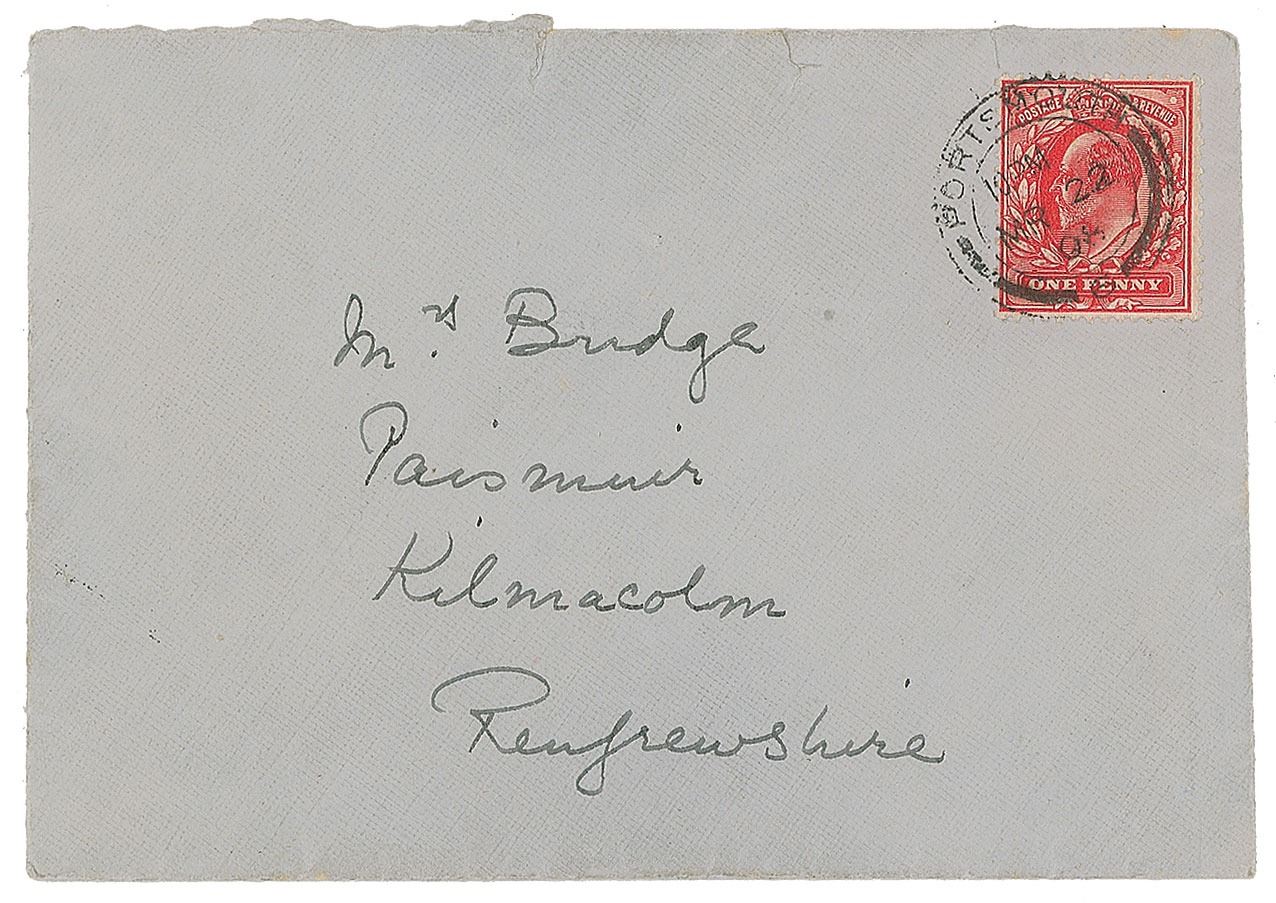 PORTSMOUTH
10 PM
MR 22
04
POSTAGE & REVENUE
ONE PENNY
Mrs Bridge
Paismuir
Kilmacolm
Renfrewshire